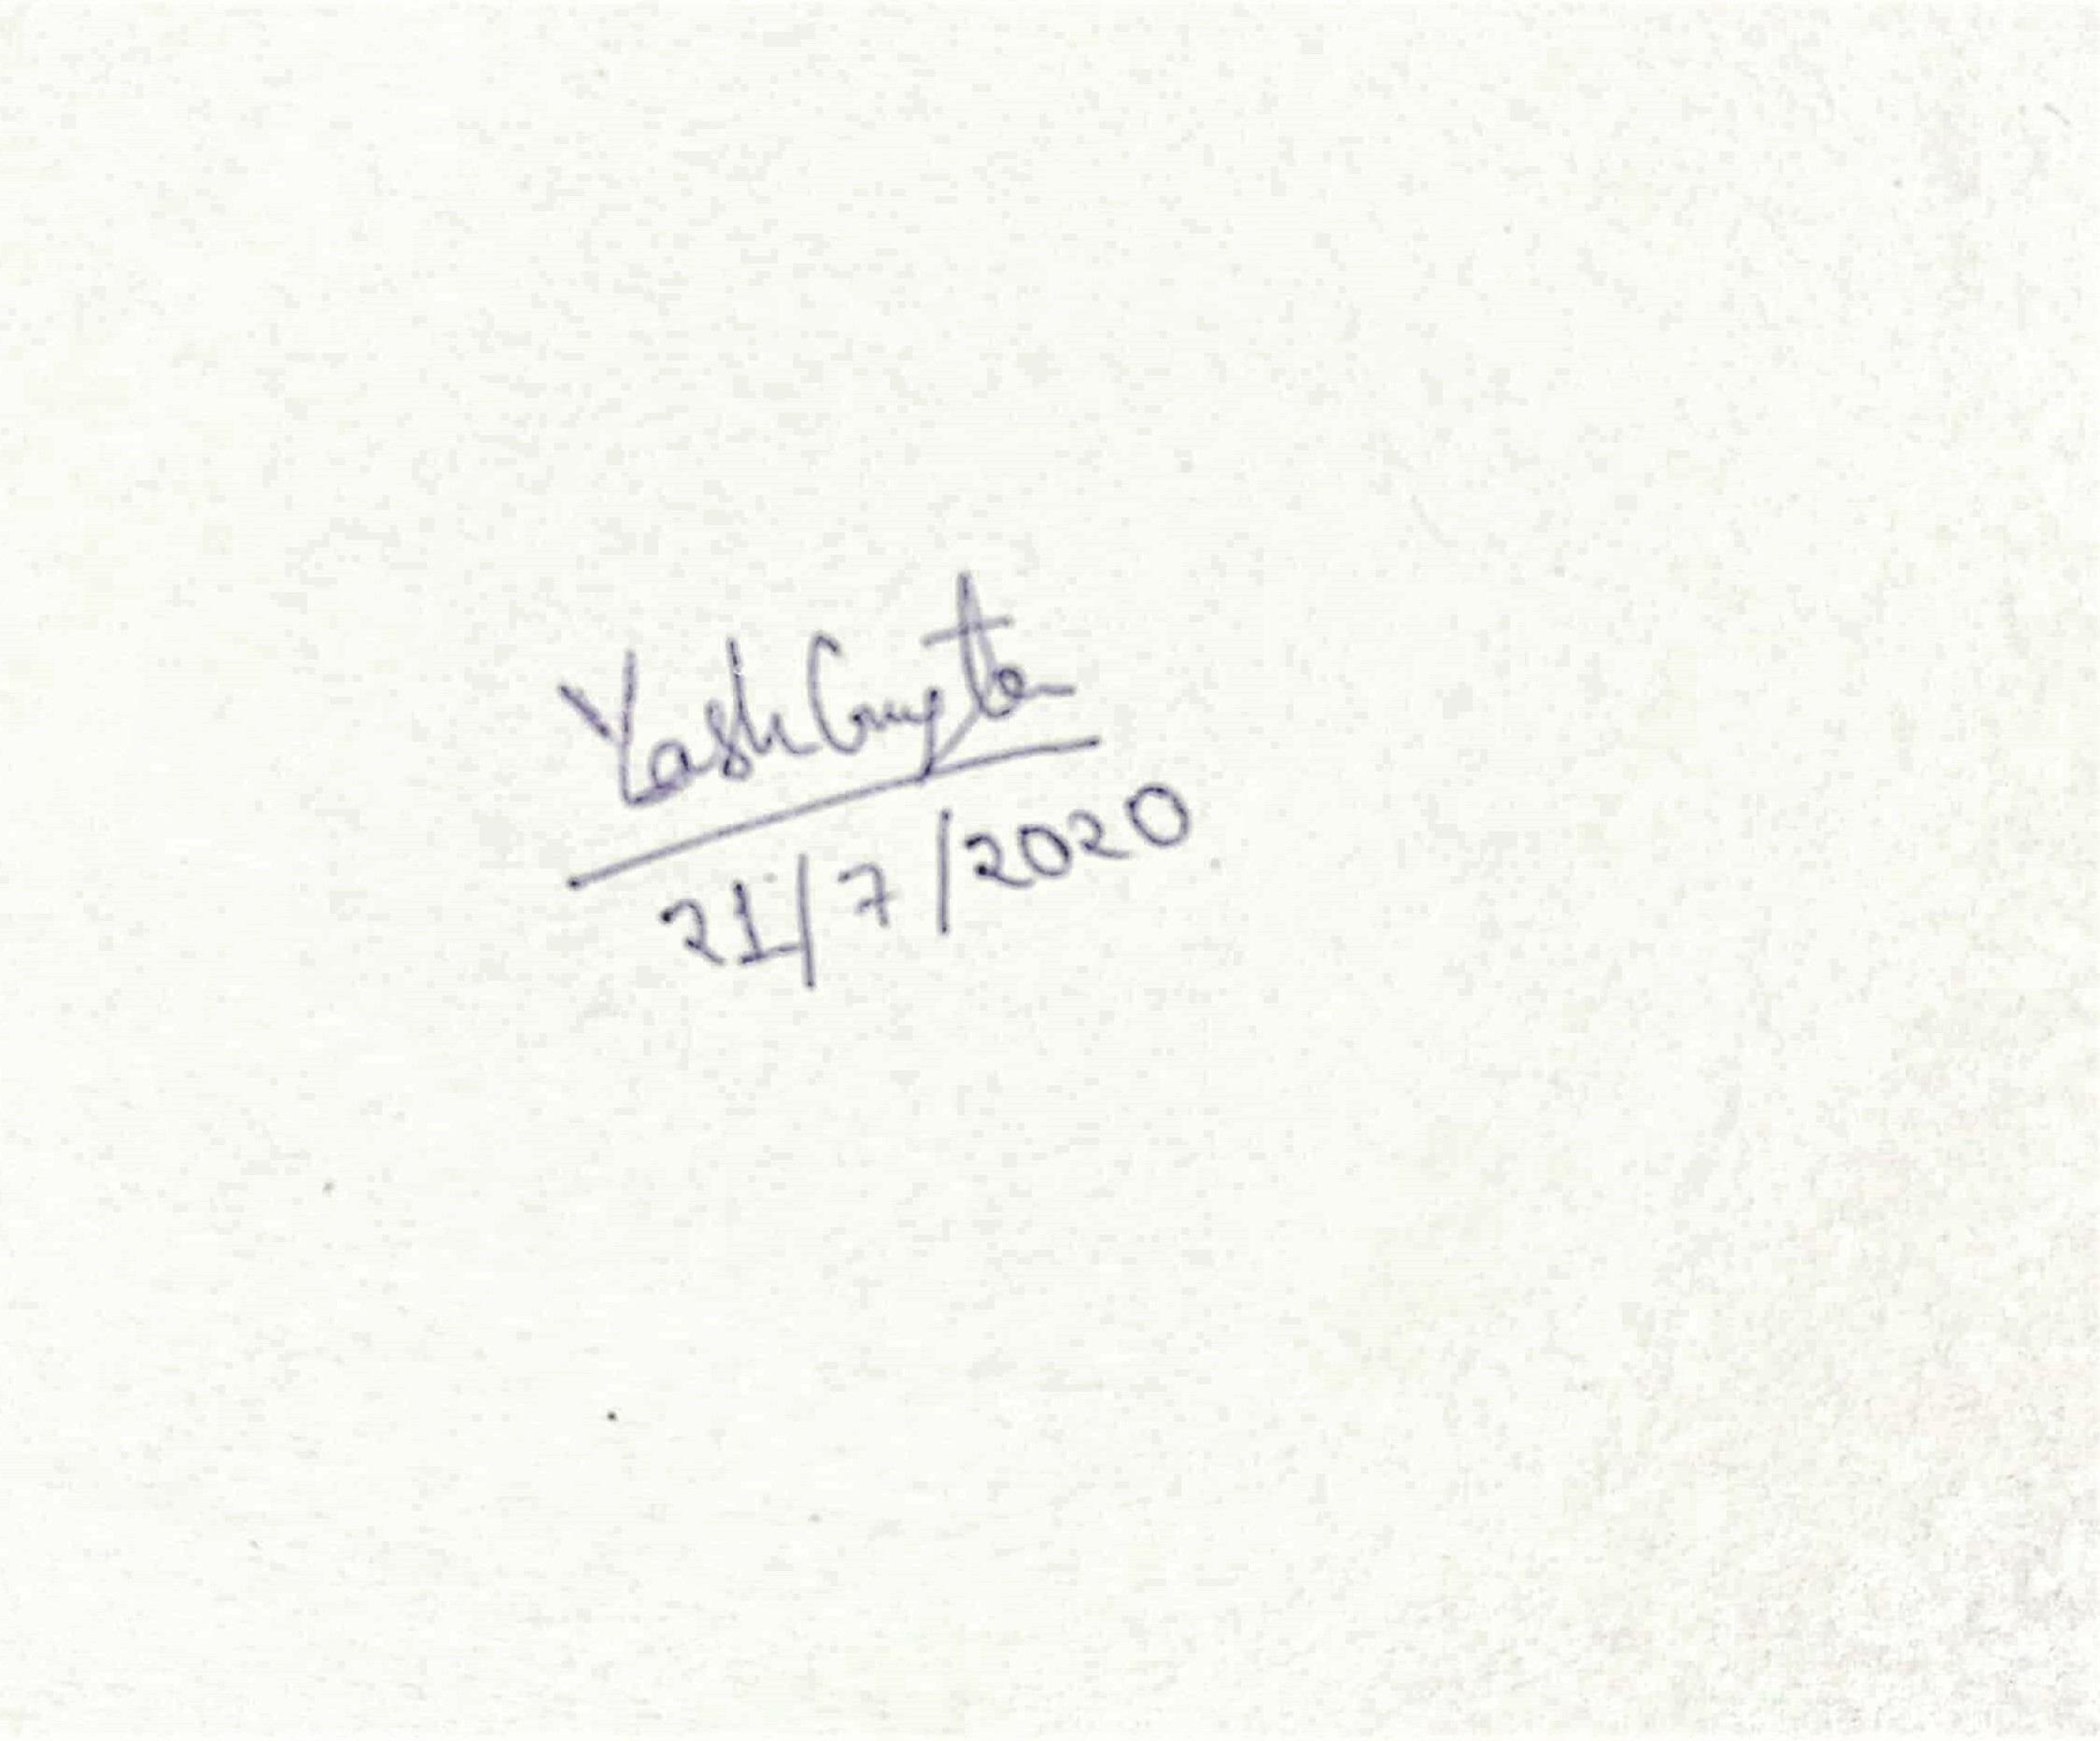 Yash Gupta
21/7/2020